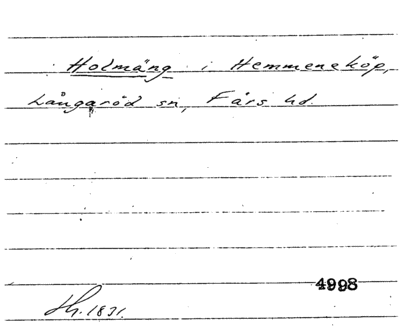 Holmäng i Hemmeneköp,
Långaröd sn, Färs hd.
4998
Hg. 1831.